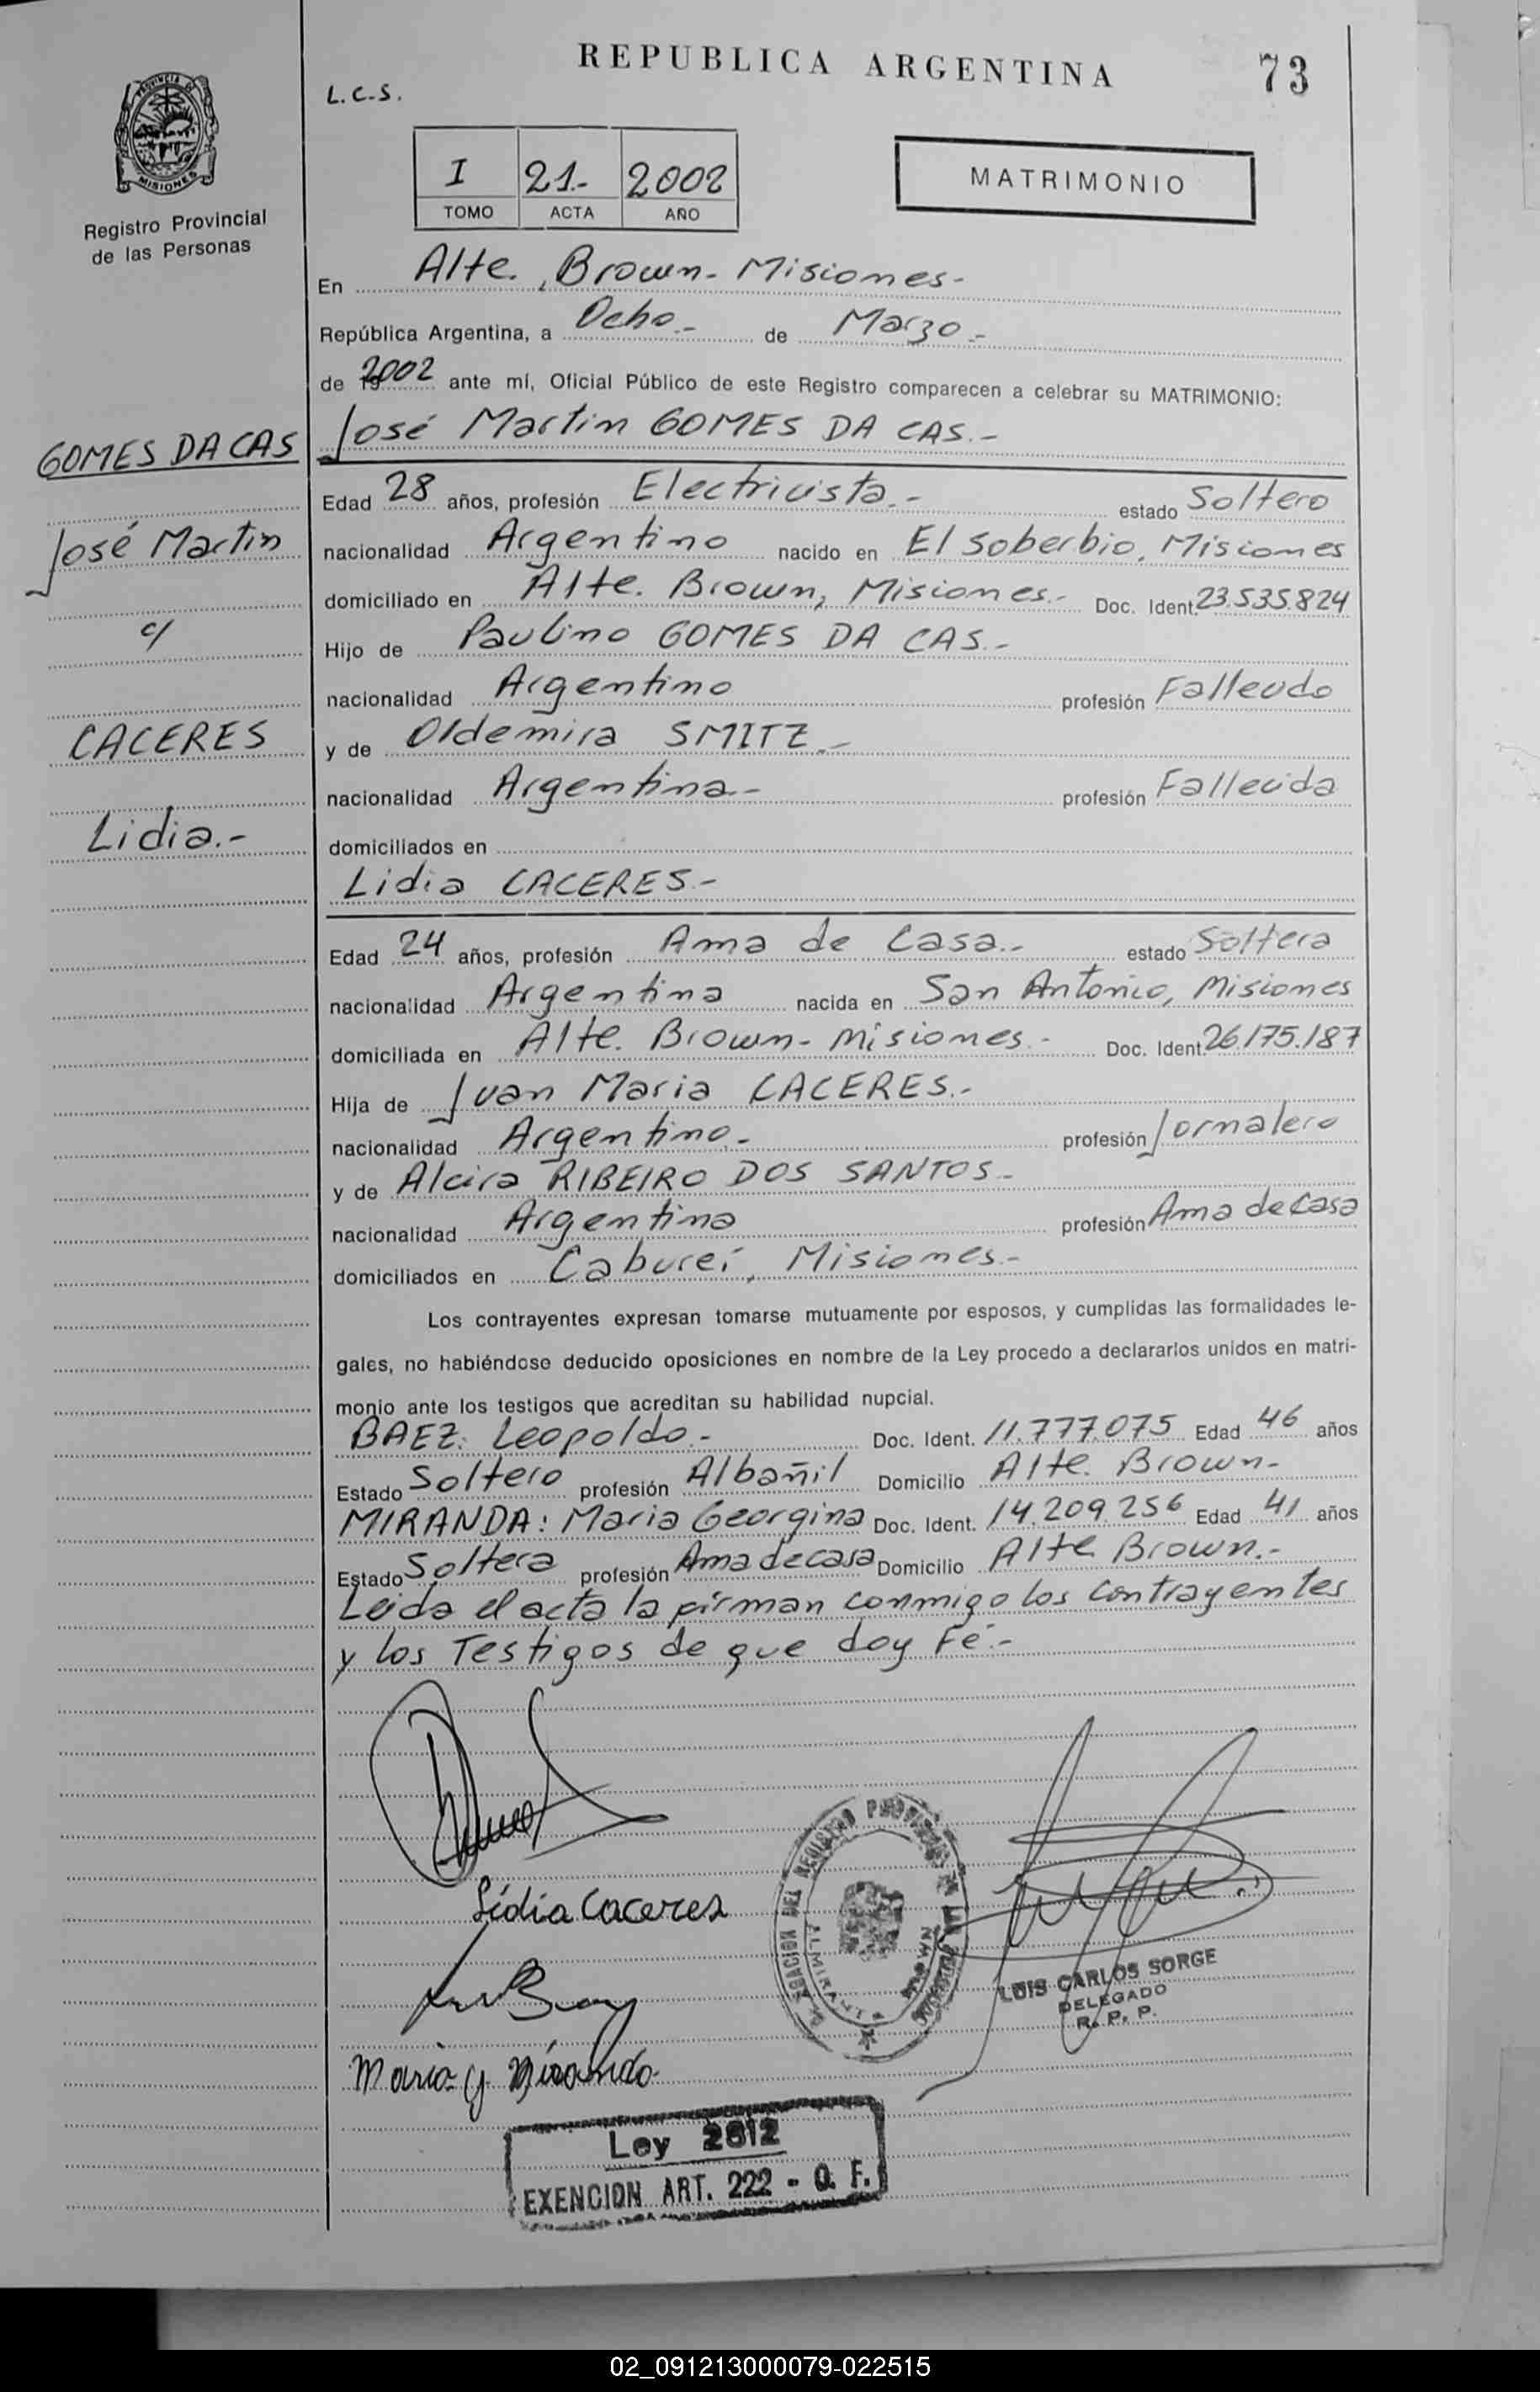 REPUBLICA ARGENTINA
73
L.C.S.
PROVINCIA DE
MISIONES
Registro Provincial
de las Personas
I 21.- 2002
TOMO ACTA AÑO
MATRIMONIO
En Alte. Brown- Misiones-
República Argentina, a Ocho.- de Marzo.-
de 2002 ante mí, Oficial Público de este Registro comparecen a celebrar su MATRIMONIO:
José Martin GOMES DA CAS.-
Edad 28 años, profesión Electricista.- estado Soltero
nacionalidad Argentino nacido en El Soberbio, Misiones
domiciliado en Alte. Brown, Misiones.- Doc. Ident. 23.535.824
Hijo de Paulino GOMES DA CAS.-
nacionalidad Argentino profesión Fallecido
y de Oldemira SMITZ.-
nacionalidad Argentina.- profesión Fallecida
domiciliados en
Lidia CACERES.-
Edad 24 años, profesión Ama de Casa.- estado Soltera
nacionalidad Argentina nacida en San Antonio, Misiones
domiciliada en Alte. Brown- Misiones.- Doc. Ident. 26.175.187
Hija de Juan Maria CACERES.-
nacionalidad Argentino.- profesión Jornalero
y de Alcira RIBEIRO DOS SANTOS.-
nacionalidad Argentina profesión Ama de Casa
domiciliados en Cabureí, Misiones.-
Los contrayentes expresan tomarse mutuamente por esposos, y cumplidas las formalidades le-
gales, no habiéndose deducido oposiciones en nombre de la Ley procedo a declararlos unidos en matri-
monio ante los testigos que acreditan su habilidad nupcial.
BAEZ: Leopoldo.- Doc. Ident. 11.777.075 Edad 46 años
Estado Soltero profesión Albañil Domicilio Alte. Brown.-
MIRANDA: Maria Georgina Doc. Ident. 14.209.256 Edad 41 años
Estado Soltera profesión Ama de casa Domicilio Alte Brown.-
Leida el acta la firman conmigo los contrayentes
y los Testigos de que doy Fé.-
GOMES DA CAS
José Martin
c/
CACERES
Lidia.-
Lidia Caceres
Maria G. Miranda
DELEGACION DEL REGISTRO PROVINCIAL DE LAS PERSONAS
ALMIRANTE BROWN
LUIS CARLOS SORGE
DELEGADO
R. P. P.
Ley 2812
EXENCION ART. 222 - O. F.
02_091213000079-022515